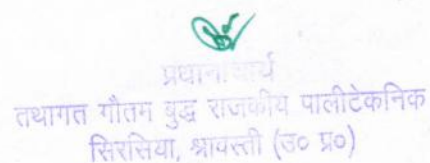 प्रधानाचार्य
तथागत गौतम बुद्ध राजकीय पालीटेकनिक
सिरसिया, श्रावस्ती (उ० प्र०)